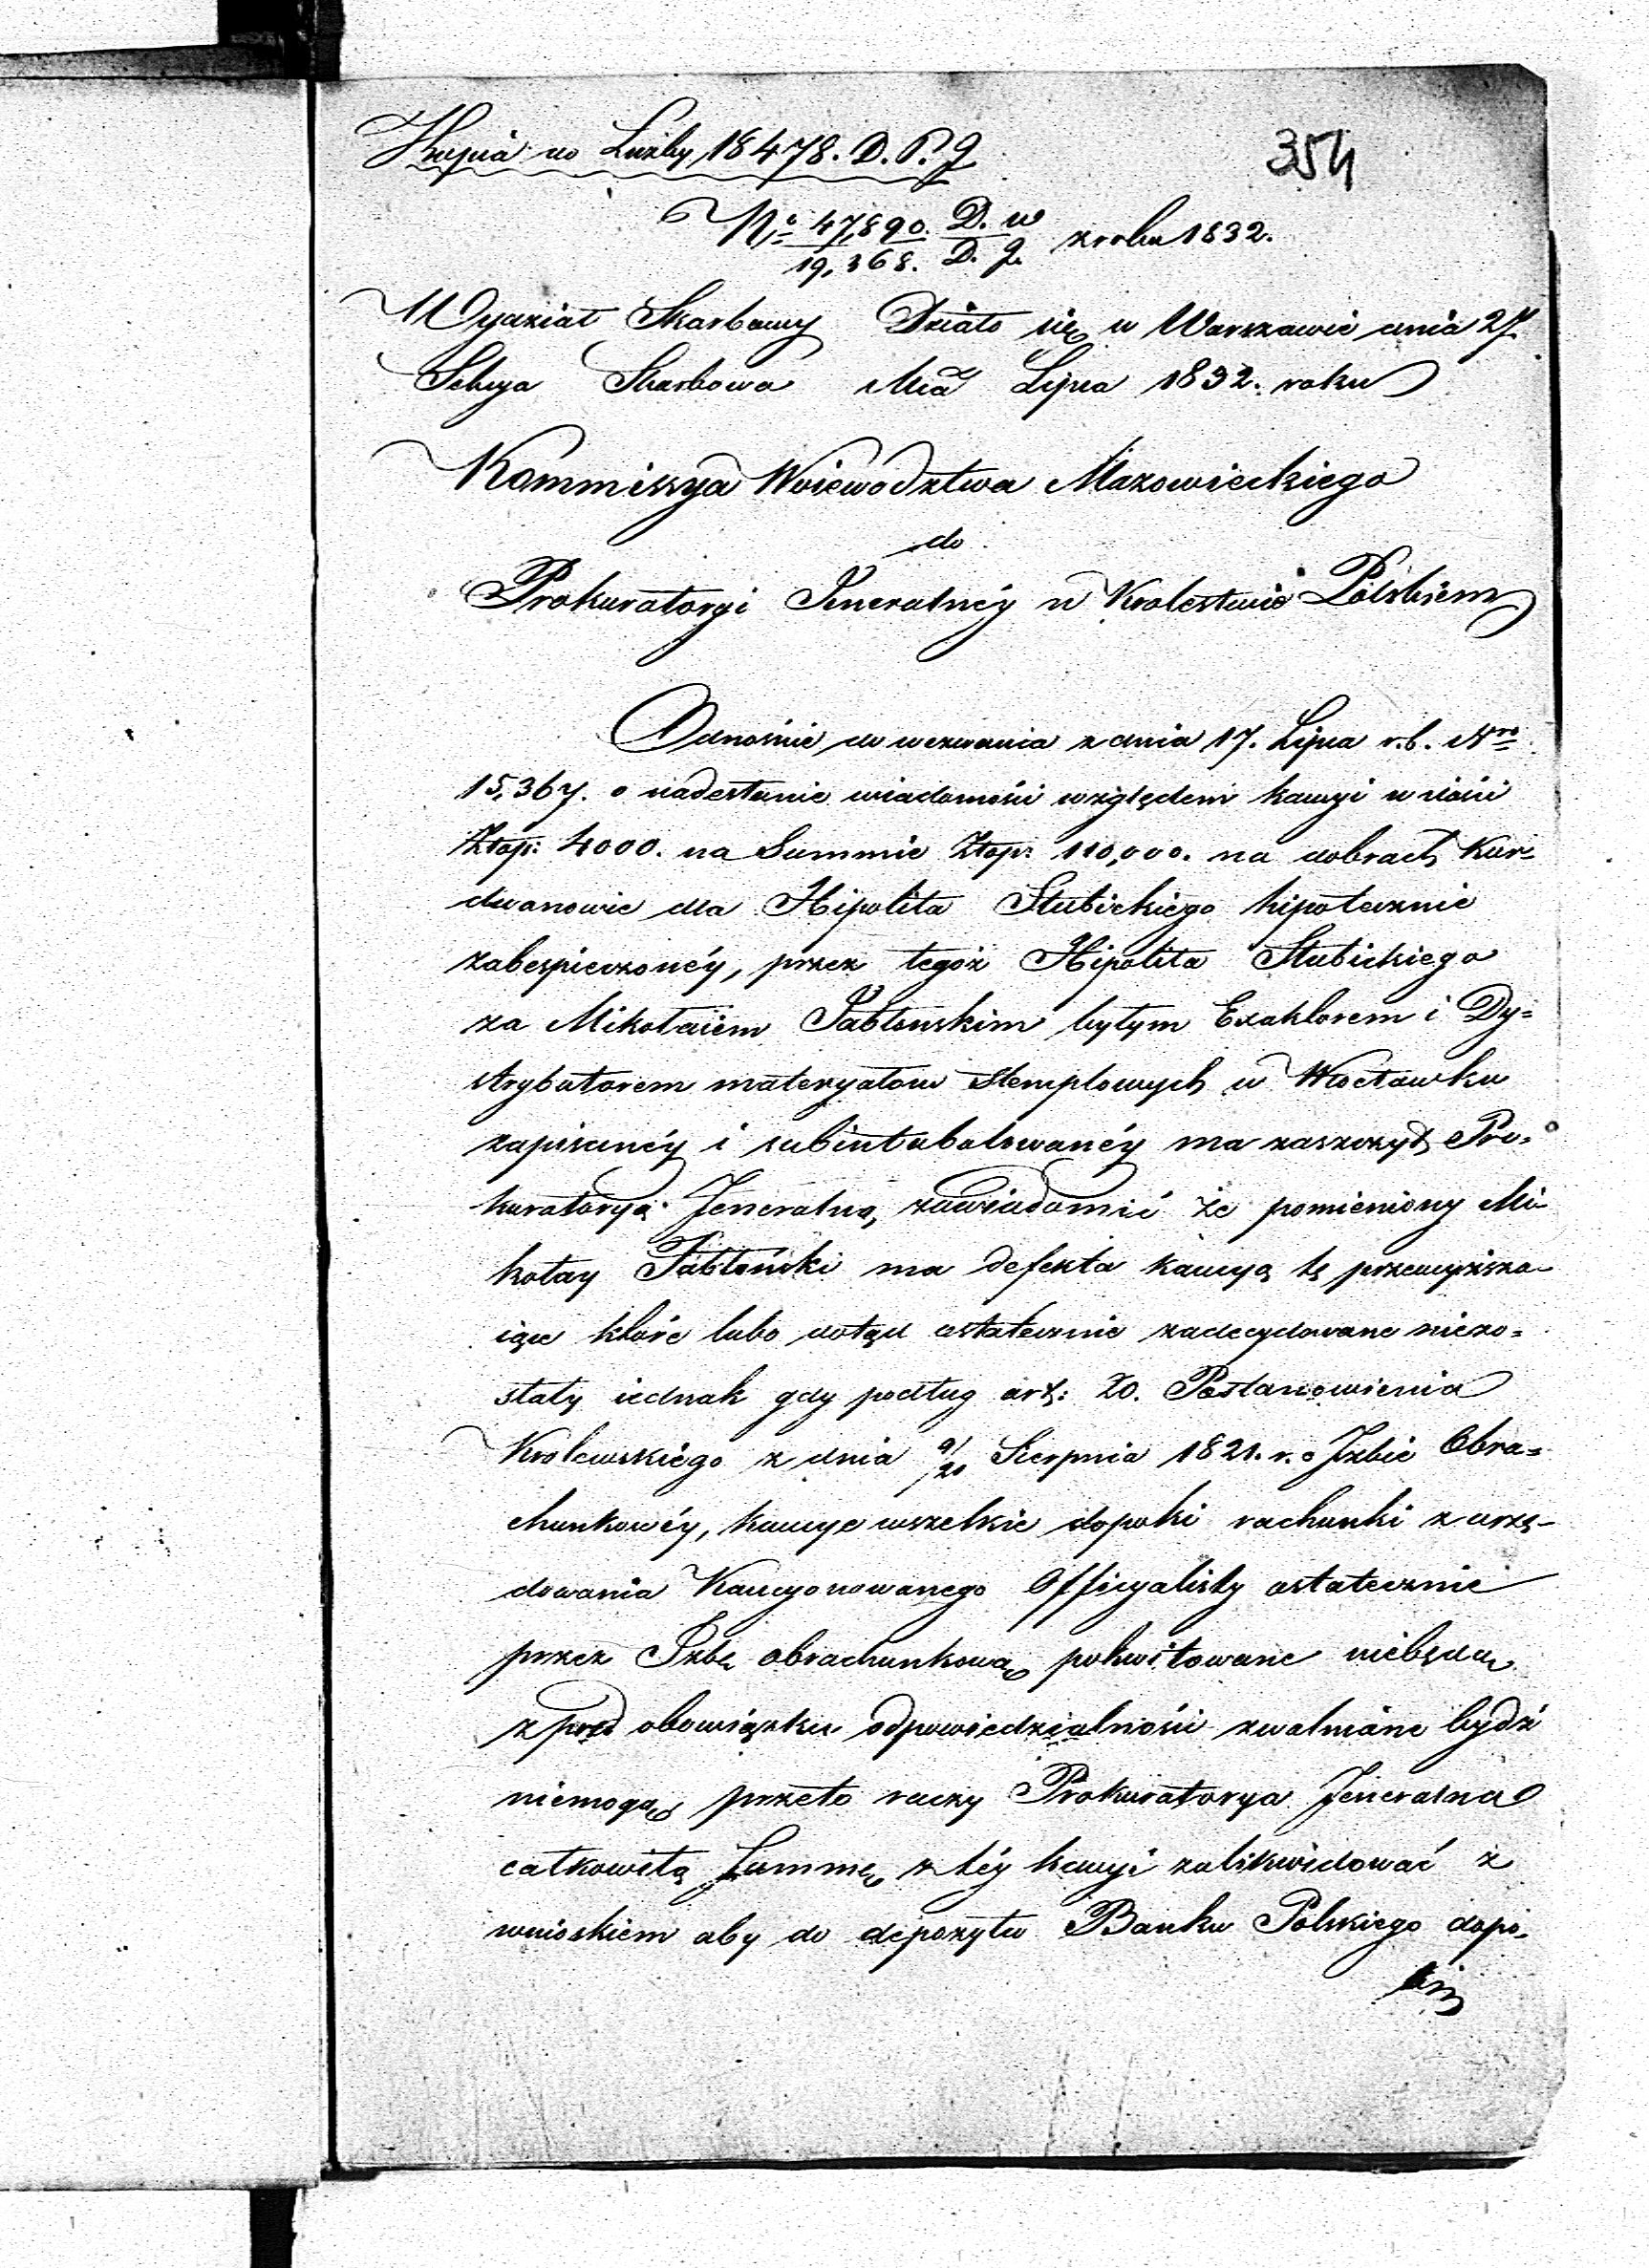 Kopia do Liczby 18478. D. P. J.
354
No 47,890. D. w
19,368. D. J. z roku 1832.
Wydział Skarbowy Działo się w Warszawie dnia 27.
Sekcya Skarbowa Mca Lipca 1832. roku
Kommissya Woiewództwa Mazowieckiego
do
Prokuratoryi Jeneralnéy w Krolestwie Polskiem
Odnośnie do wezwania z dnia 17. Lipca r.b. Nro
15,367. o nadesłanie wiadomości względem kaucyi w ilości
Złop: 4000. na Summie Złop: 110,000. na dobrach Kur=
dwanowie dla Hipolita Słubickiego hipotecznie
zabespieczonéy, przez tegoż Hipolita Słubickiego
za Mikołaiem Jabłonskim byłym Exaktorem i Dy=
strybutorem materyałow stemplowych w Włocławku
zapisanéy i subintabulowanéy ma zaszczyt Pro=
kuratoryą Jeneralną, zawiadomić że pomieniony Mi-
kołay Jabłoński ma defekta kaucyą tę przewyższa-
iące któré lubo dotąd ostatecznie zadecydowane niezo=
stały iednak gdy podług art: 20. Postanowienia
Krolewskiego z dnia 9/20 Sierpnia 1821. r. o Izbie Obra=
chunkowéy, kaucye wszelkie dopoki rachunki z urzę-
dowania Kaucyonowanego Officyalisty ostatecznie
przez Izbę obrachunkową pokwitowane niebędą
z pod obowiązku odpowiedzialności zwalniane bydź
niemogą, przeto raczy Prokuratorya Jeneralna
całkowitą Summę z téy kaucyi zalikwidować z
wnioskiem aby do depozytu Banku Polskiego dopo-